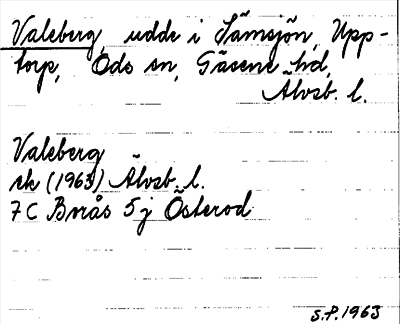 Valeberg, udde i Sämsjön, Upp-
torp, Ods sn, Gäsene hd,
Älvsb. l.
Valeberg
ek (1963) Älvsb. l.
7C Borås 5j Österod
S.P. 1963